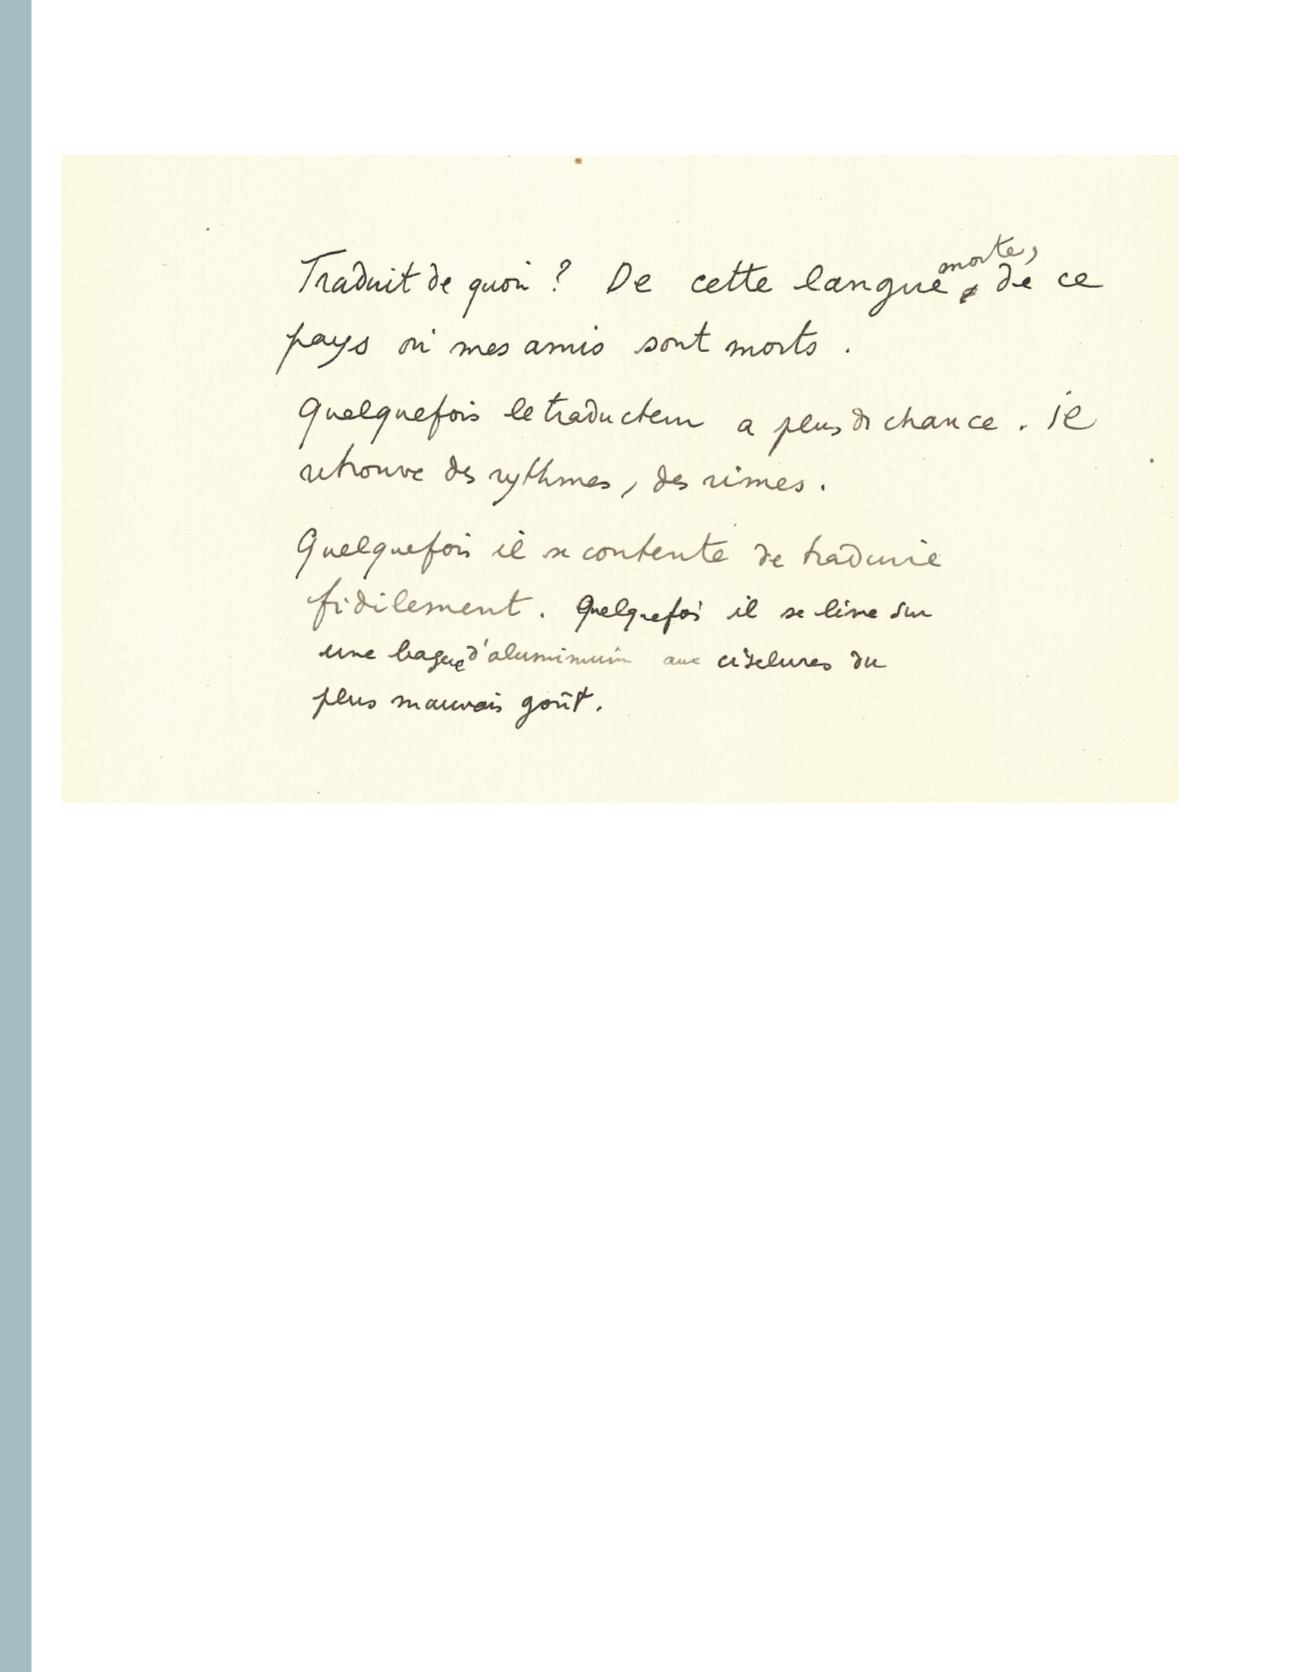 Traduit de quoi ? De cette langue morte, de ce
pays où mes amis sont morts .
Quelquefois le traducteur a plus de chance . il
retrouve des rythmes, des rimes .
Quelquefois il se contente de traduire
fidèlement . Quelquefois il se lime sur
une bague d'aluminium aux ciselures du
plus mauvais goût .